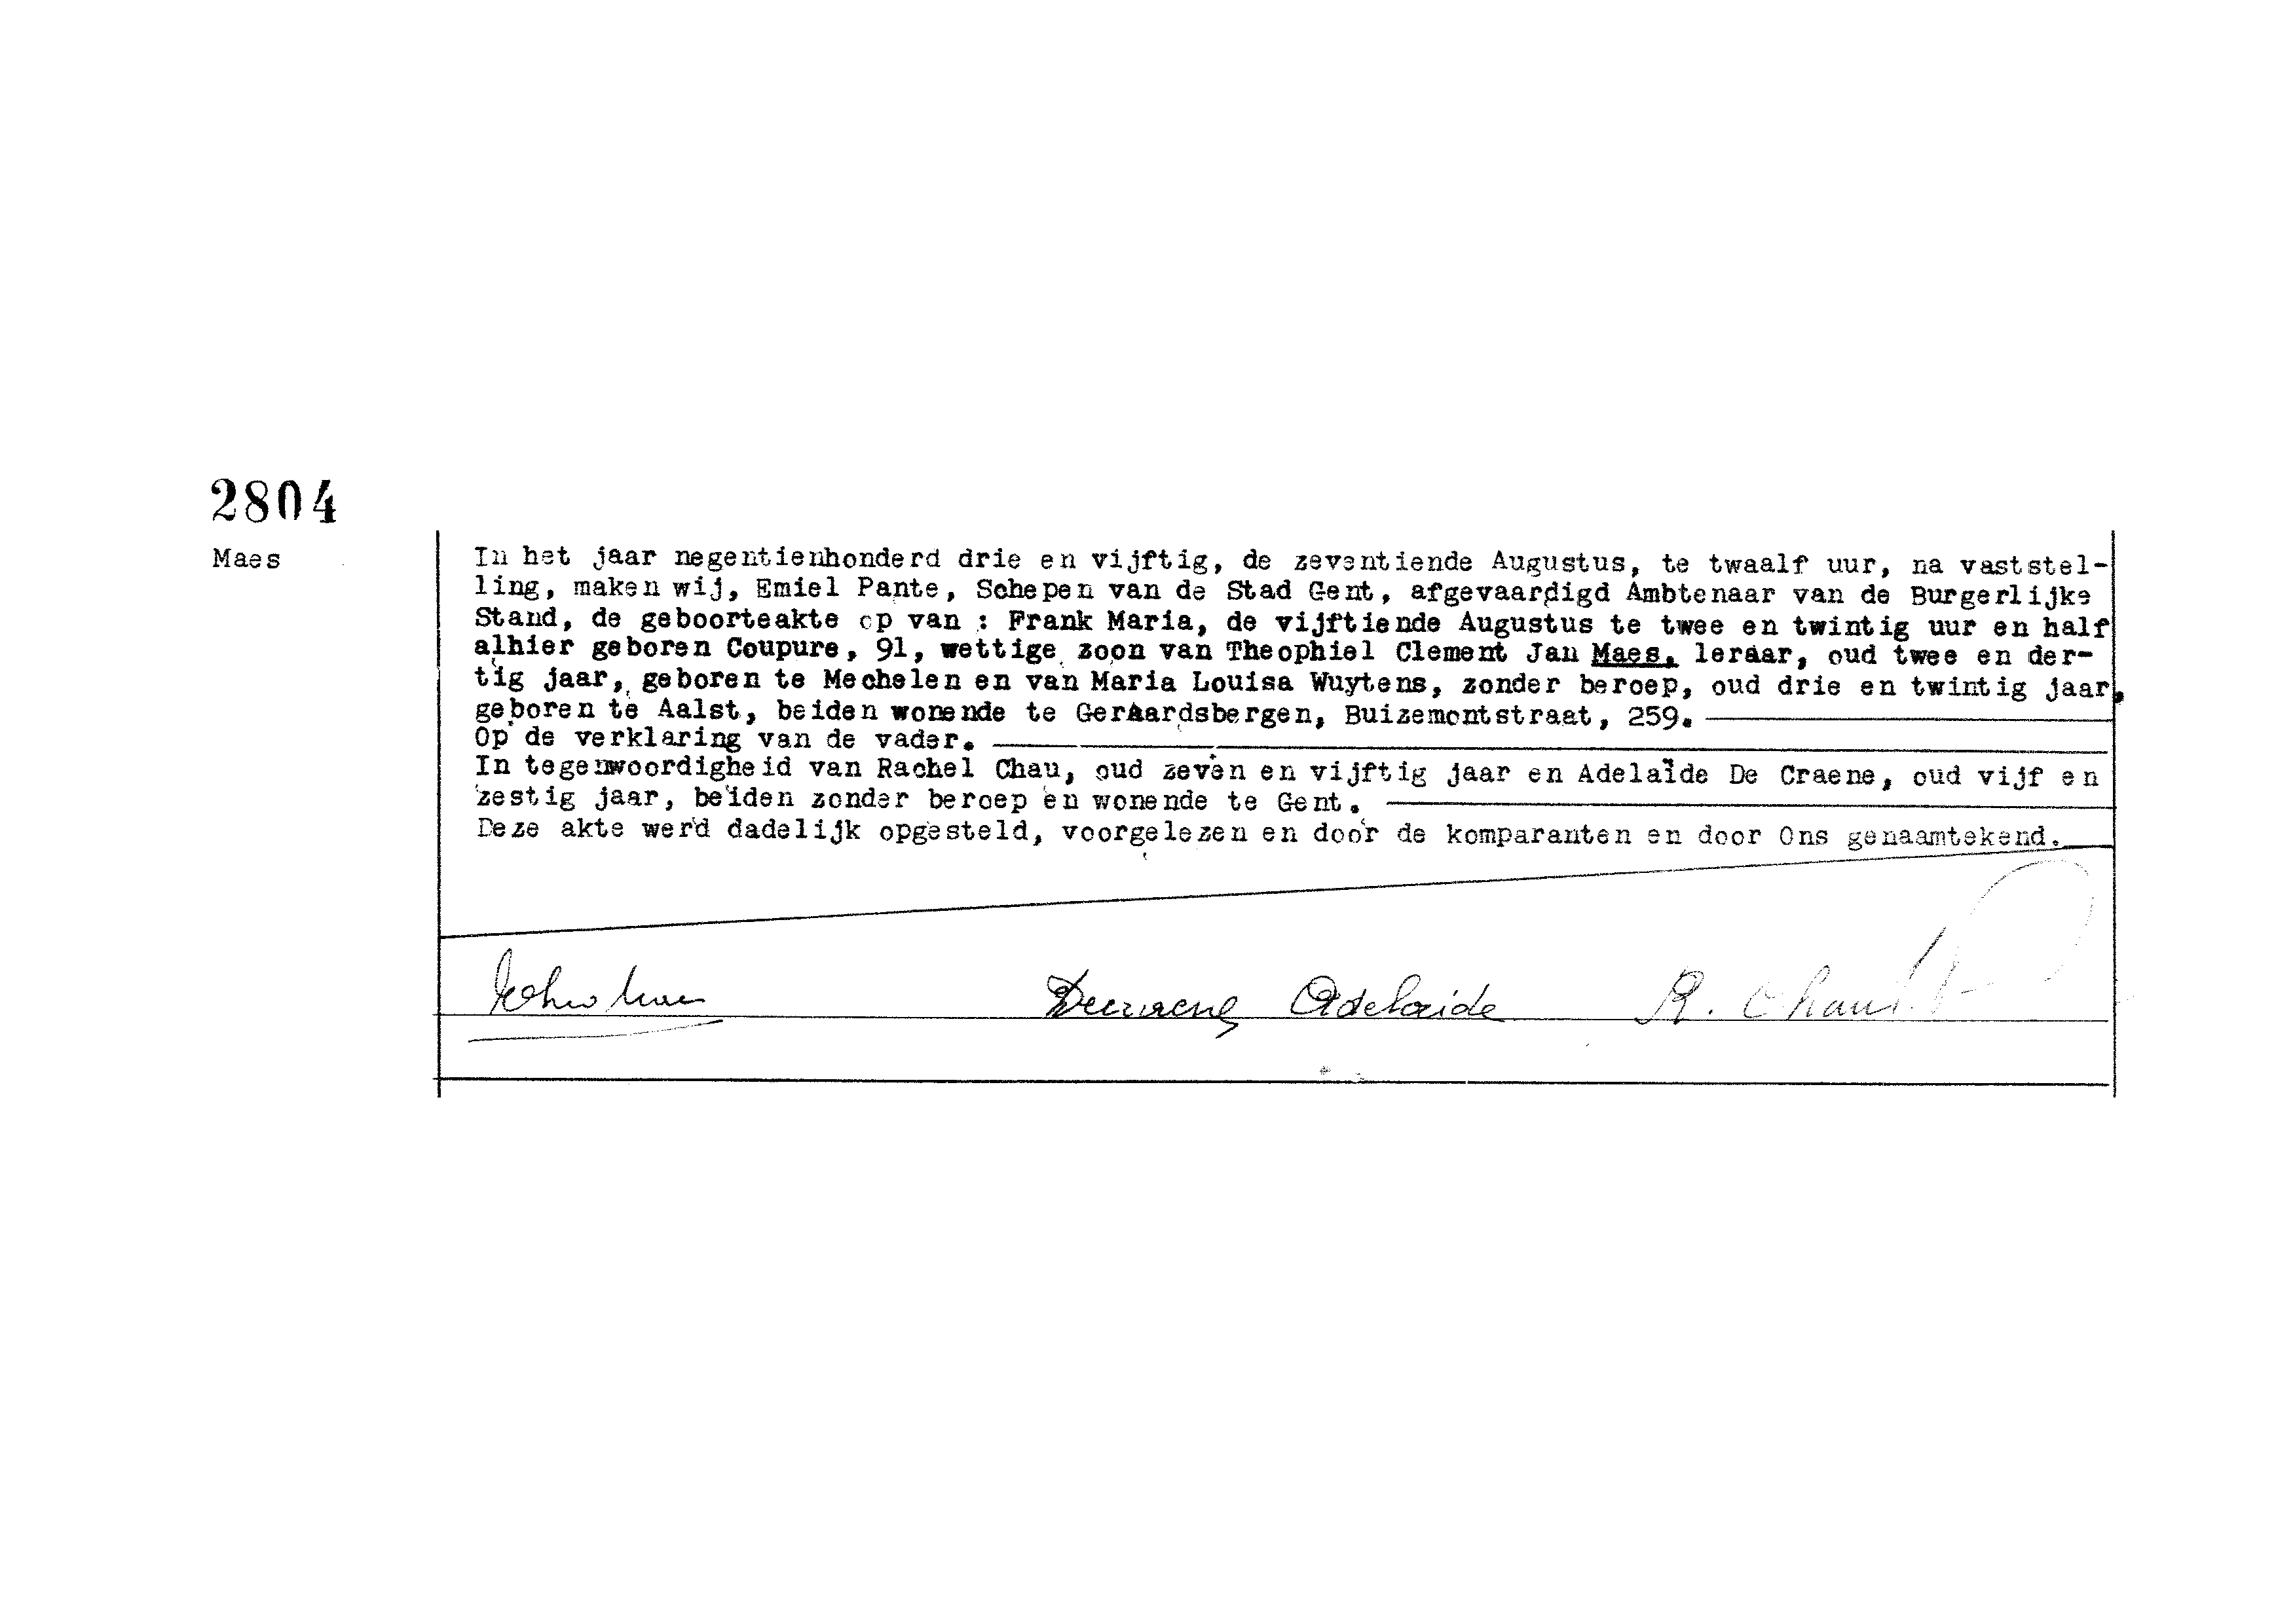 2804
Maes
In het jaar negentienhonderd drie en vijftig, de zeventiende Augustus, te twaalf uur, na vaststel-
ling, maken wij, Emiel Pante, Schepen van de Stad Gent, afgevaardigd Ambtenaar van de Burgerlijke
Stand, de geboorteakte op van : Frank Maria, de vijftiende Augustus te twee en twintig uur en half
alhier geboren Coupure, 91, wettige zoon van Theophiel Clement Jan Maes, leraar, oud twee en der-
tig jaar, geboren te Mechelen en van Maria Louisa Wuytens, zonder beroep, oud drie en twintig jaar,
geboren te Aalst, beiden wonende te Geraardsbergen, Buizemontstraat, 259.
Op de verklaring van de vader.
In tegenwoordigheid van Rachel Chau, oud zeven en vijftig jaar en Adelaïde De Craene, oud vijf en
zestig jaar, beiden zonder beroep en wonende te Gent.
Deze akte werd dadelijk opgesteld, voorgelezen en door de komparanten en door Ons genaamtekend.
Decraene Adelaide R. Chau